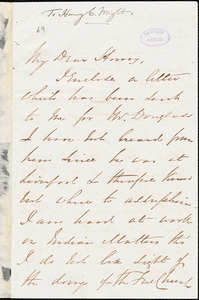 To Henry C. Wright.
My Dear Henry,
I Enclose a letter
which has been sent
to me for Mr. Douglass
I have not heard from
him since he was at
Liverpool & therefore know
not where to
I am hard at work
on Indian Matters tho
I do not lose sight of
the doings of the Free Church